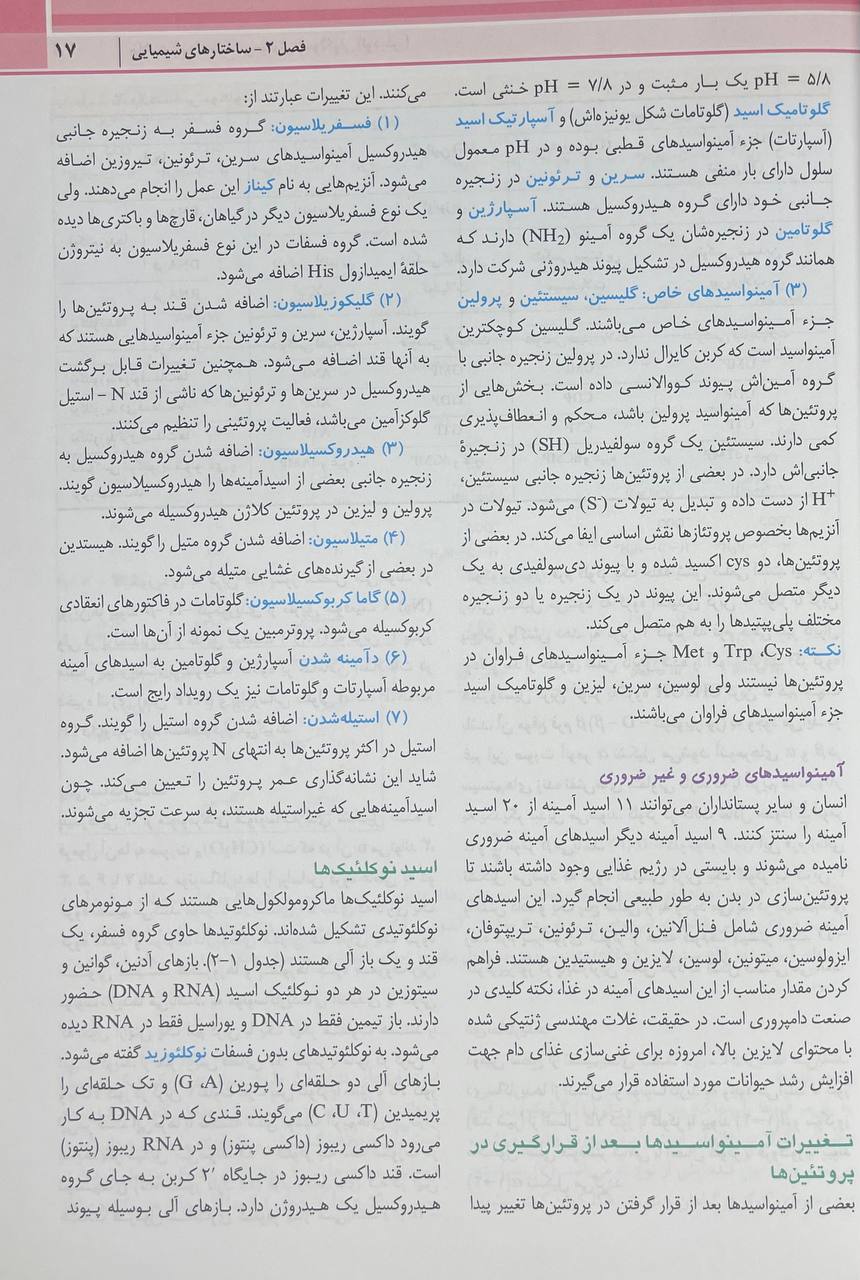 فصل ۲ - ساختارهای شیمیایی | ۱۷
pH = ۵/۸ یک بار مثبت و در pH = ۷/۸ خنثی است.
گلوتامیک اسید (گلوتامات شکل یونیزه‌اش) و آسپارتیک اسید
(آسپارتات) جزء آمینواسیدهای قطبی بوده و در pH معمول
سلول دارای بار منفی هستند. سرین و ترئونین در زنجیره
جانبی خود دارای گروه هیدروکسیل هستند. آسپارژین و
گلوتامین در زنجیره‌شان یک گروه آمینو (NH₂) دارند که
همانند گروه هیدروکسیل در تشکیل پیوند هیدروژنی شرکت دارد.
(۳) آمینواسیدهای خاص: گلیسین، سیستئین و پرولین
جزء آمینواسیدهای خاص می‌باشند. گلیسین کوچکترین
آمینواسید است که کربن کایرال ندارد. در پرولین زنجیره جانبی با
گروه آمین‌اش پیوند کووالانسی داده است. بخش‌هایی از
پروتئین‌ها که آمینواسید پرولین باشد، محکم و انعطاف‌پذیری
کمی دارند. سیستئین یک گروه سولفیدریل (SH) در زنجیرهٔ
جانبی‌اش دارد. در بعضی از پروتئین‌ها زنجیره جانبی سیستئین،
H⁺ از دست داده و تبدیل به تیولات (S⁻) می‌شود. تیولات در
آنزیم‌ها بخصوص پروتئازها نقش اساسی ایفا می‌کند. در بعضی از
پروتئین‌ها، دو cys اکسید شده و با پیوند دی‌سولفیدی به یک
دیگر متصل می‌شوند. این پیوند در یک زنجیره یا دو زنجیره
مختلف پلی‌پپتیدها را به هم متصل می‌کند.
نکته: Cys، Trp و Met جزء آمینواسیدهای فراوان در
پروتئین‌ها نیستند ولی لوسین، سرین، لیزین و گلوتامیک اسید
جزء آمینواسیدهای فراوان می‌باشند.
آمینواسیدهای ضروری و غیر ضروری
انسان و سایر پستانداران می‌توانند ۱۱ اسید آمینه از ۲۰ اسید
آمینه را سنتز کنند. ۹ اسید آمینه دیگر اسیدهای آمینه ضروری
نامیده می‌شوند و بایستی در رژیم غذایی وجود داشته باشند تا
پروتئین‌سازی در بدن به طور طبیعی انجام گیرد. این اسیدهای
آمینه ضروری شامل فنل‌آلانین، والین، ترئونین، تریپتوفان،
ایزولوسین، میتونین، لوسین، لایزین و هیستیدین هستند. فراهم
کردن مقدار مناسب از این اسیدهای آمینه در غذا، نکته کلیدی در
صنعت دامپروری است. در حقیقت، غلات مهندسی ژنتیکی شده
با محتوای لایزین بالا، امروزه برای غنی‌سازی غذای دام جهت
افزایش رشد حیوانات مورد استفاده قرار می‌گیرند.
تغییرات آمینواسیدها بعد از قرارگیری در
پروتئین‌ها
بعضی از آمینواسیدها بعد از قرار گرفتن در پروتئین‌ها تغییر پیدا
می‌کنند. این تغییرات عبارتند از:
(۱) فسفریلاسیون: گروه فسفر به زنجیره جانبی
هیدروکسیل آمینواسیدهای سرین، ترئونین، تیروزین اضافه
می‌شود. آنزیم‌هایی به نام کیناز این عمل را انجام می‌دهند. ولی
یک نوع فسفریلاسیون دیگر در گیاهان، قارچ‌ها و باکتری‌ها دیده
شده است. گروه فسفات در این نوع فسفریلاسیون به نیتروژن
حلقهٔ ایمیدازول His اضافه می‌شود.
(۲) گلیکوزیلاسیون: اضافه شدن قند به پروتئین‌ها را
گویند. آسپارژین، سرین و ترئونین جزء آمینواسیدهایی هستند که
به آنها قند اضافه می‌شود. همچنین تغییرات قابل برگشت
هیدروکسیل در سرین‌ها و ترئونین‌ها که ناشی از قند N - استیل
گلوکزآمین می‌باشد، فعالیت پروتئینی را تنظیم می‌کنند.
(۳) هیدروکسیلاسیون: اضافه شدن گروه هیدروکسیل به
زنجیره جانبی بعضی از اسیدآمینه‌ها را هیدروکسیلاسیون گویند.
پرولین و لیزین در پروتئین کلاژن هیدروکسیله می‌شوند.
(۴) متیلاسیون: اضافه شدن گروه متیل را گویند. هیستدین
در بعضی از گیرنده‌های غشایی متیله می‌شود.
(۵) گاما کربوکسیلاسیون: گلوتامات در فاکتورهای انعقادی
کربوکسیله می‌شود. پروترمبین یک نمونه از آن‌ها است.
(۶) دآمینه شدن آسپارژین و گلوتامین به اسیدهای آمینه
مربوطه آسپارتات و گلوتامات نیز یک رویداد رایج است.
(۷) استیله‌شدن: اضافه شدن گروه استیل را گویند. گروه
استیل در اکثر پروتئین‌ها به انتهای N پروتئین‌ها اضافه می‌شود.
شاید این نشانه‌گذاری عمر پروتئین را تعیین می‌کند. چون
اسیدآمینه‌هایی که غیراستیله هستند، به سرعت تجزیه می‌شوند.
اسید نوکلئیک‌ها
اسید نوکلئیک‌ها ماکرومولکول‌هایی هستند که از مونومرهای
نوکلئوتیدی تشکیل شده‌اند. نوکلئوتیدها حاوی گروه فسفر، یک
قند و یک باز آلی هستند (جدول ۱-۲). بازهای آدنین، گوانین و
سیتوزین در هر دو نوکلئیک اسید (RNA و DNA) حضور
دارند. باز تیمین فقط در DNA و یوراسیل فقط در RNA دیده
می‌شود. به نوکلئوتیدهای بدون فسفات نوکلئوزید گفته می‌شود.
بازهای آلی دو حلقه‌ای را پورین (G ،A) و تک حلقه‌ای را
پریمیدین (C ،U ،T) می‌گویند. قندی که در DNA به کار
می‌رود داکسی ریبوز (داکسی پنتوز) و در RNA ریبوز (پنتوز)
است. قند داکسی ریبوز در جایگاه ′۲ کربن به جای گروه
هیدروکسیل یک هیدروژن دارد. بازهای آلی بوسیله پیوند